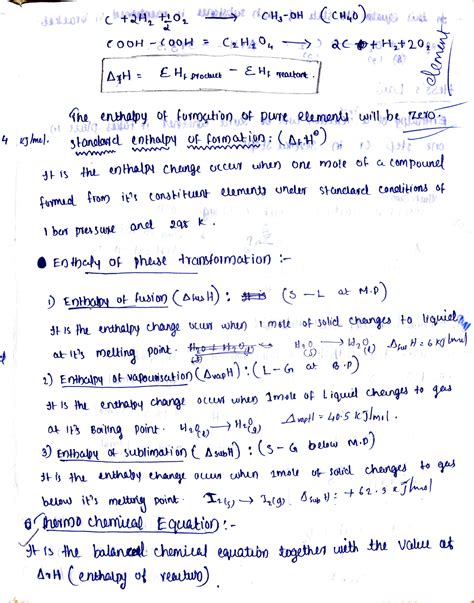 C + 2H₂ + ½O₂ ⟶ CH₃-OH (CH₄O)
COOH - COOH = C₂H₂O₄ ⟶ 2C + H₂ + 2O₂
element
ΔrH = ΣHf product - ΣHf reactant.
The enthalpy of formation of pure elements will be zero.
4 kJ/mol. standard enthalpy of formation: (ΔfH°)
It is the enthalpy change occur when one mole of a compound
formed from it's constituent elements under standard conditions of
1 bar pressure and 298 K.
● Enthalpy of phase transformation :-
1) Enthalpy of fusion (ΔfusH) : (S - L at M.P)
It is the enthalpy change occur when 1 mole of solid changes to liquid
at it's melting point. H₂O(s) ⟶ H₂O(l) ΔfusH = 6 KJ/mol
2) Enthalpy of vapourisation (ΔvapH) : (L - G at B.P)
It is the enthalpy change occur when 1 mole of Liquid changes to gas
at it's Boiling point. H₂O(l) ⟶ H₂O(g) ΔvapH = 40.5 KJ/mol.
3) Enthalpy of sublimation (ΔsubH) : (S - G below M.P)
It is the enthalpy change occur when 1 mole of solid changes to gas
below it's melting point. I₂(s) → I₂(g). ΔsubH = +62.3 KJ/mol
Thermo chemical Equation :-
It is the balanced chemical equation together with the value of
ΔrH (enthalpy of reaction)